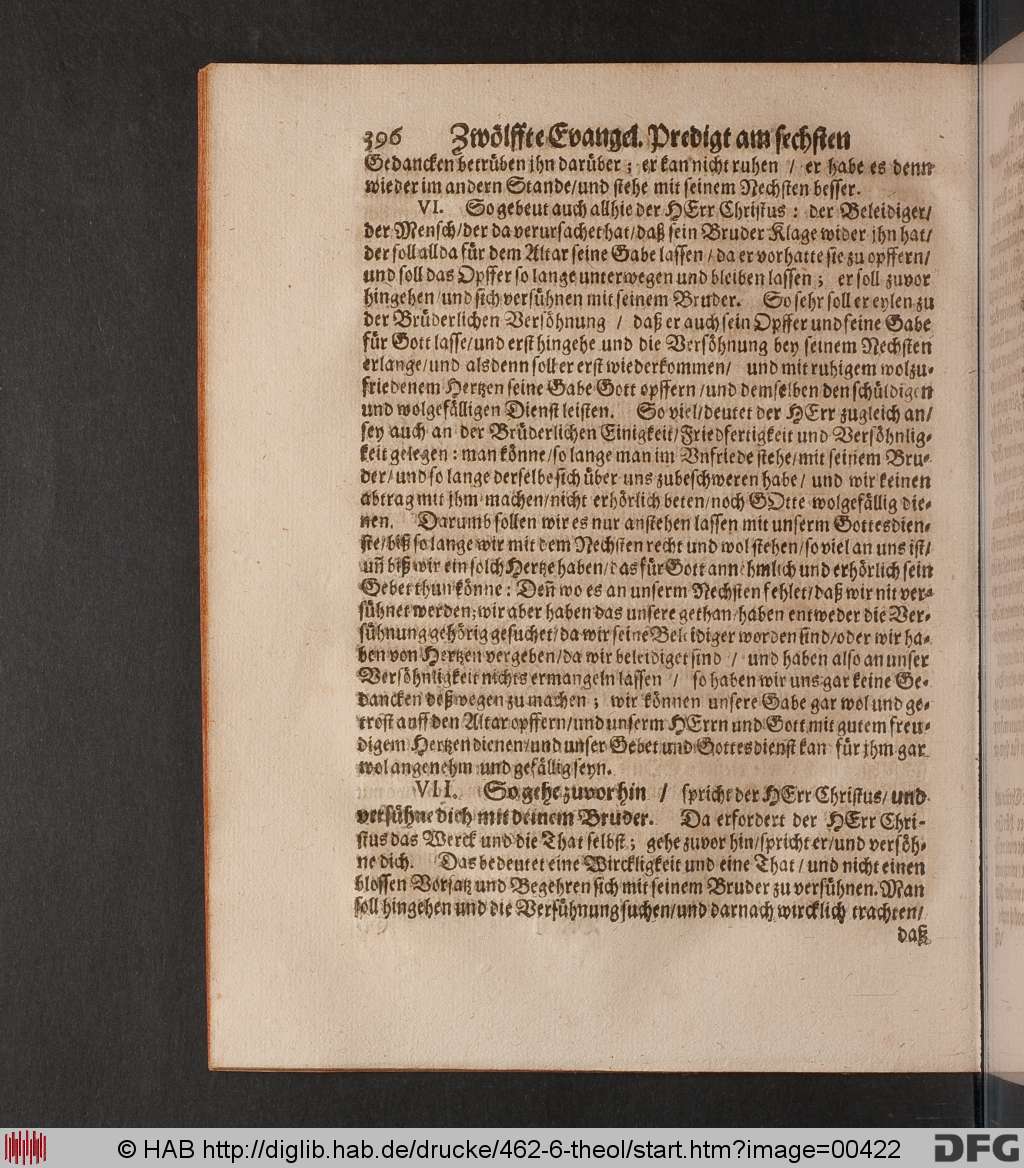 396 Zwölffte Evangel. Predigt am sechsten
Gedancken betrüben jhn darüber; er kan nicht ruhen / er habe es denn
wieder im andern Stande/und stehe mit seinem Nechsten besser.
VI. So gebeut auch allhie der HErr Christus: der Beleidiger/
der Mensch/der da verursachet hat/daß sein Bruder Klage wider jhn hat/
der soll allda für dem Altar seine Gabe lassen/da er vorhatte sie zu opffern/
und soll das Opffer so lange unterwegen und bleiben lassen; er soll zuvor
hingehen/und sich versühnen mit seinem Bruder. So sehr soll er eylen zu
der Brüderlichen Versöhnung / daß er auch sein Opffer und seine Gabe
für Gott lasse/und erst hingehe und die Versöhnung bey seinem Nechsten
erlange/und alsdenn soll er erst wiederkommen/ und mit ruhigem wolzu-
friedenem Hertzen seine Gabe Gott opffern/und demselben den schüldigen
und wolgefälligen Dienst leisten. So viel/deutet der HErr zugleich an/
sey auch an der Brüderlichen Einigkeit/Friedfertigkeit und Versöhnlig-
keit gelegen: man könne/so lange man im Vnfriede stehe/mit seinem Bru-
der/und so lange derselbe sich über uns zubeschweren habe/ und wir keinen
abtrag mit jhm machen/nicht erhörlich beten/noch GOtte wolgefällig die-
nen. Darumb sollen wir es nur anstehen lassen mit unserm Gottesdien-
ste/biß so lange wir mit dem Nechsten recht und wol stehen/so viel an uns ist/
uñ biß wir ein solch Hertze haben/das für Gott annehmlich und erhörlich sein
Gebet thun könne: Deñ wo es an unserm Nechsten fehlet/daß wir nit ver-
sühnet werden; wir aber haben das unsere gethan/haben entweder die Ver-
sühnung gehörig gesuchet/da wir seine Beleidiger worden sind/oder wir ha-
ben von Hertzen vergeben/da wir beleidiget sind / und haben also an unser
Versöhnligkeit nichts ermangeln lassen / so haben wir uns gar keine Ge-
dancken deßwegen zu machen; wir können unsere Gabe gar wol und ge-
trost auff den Altar opffern/und unserm HErrn und Gott mit gutem freu-
digem Hertzen dienen/und unser Gebet und Gottesdienst kan für jhm gar
wol angenehm und gefällig seyn.
VII. So gehe zuvor hin / spricht der HErr Christus/ und
versühne dich mit deinem Bruder. Da erfordert der HErr Chri-
stus das Werck und die That selbst; gehe zuvor hin/spricht er/und versöh-
ne dich. Das bedeutet eine Wirckligkeit und eine That/und nicht einen
blossen Vorsatz und Begehren sich mit seinem Bruder zu versühnen. Man
soll hingehen und die Versühnung suchen/und darnach wircklich trachten/
daß
© HAB http://diglib.hab.de/drucke/462-6-theol/start.htm?image=00422
DFG